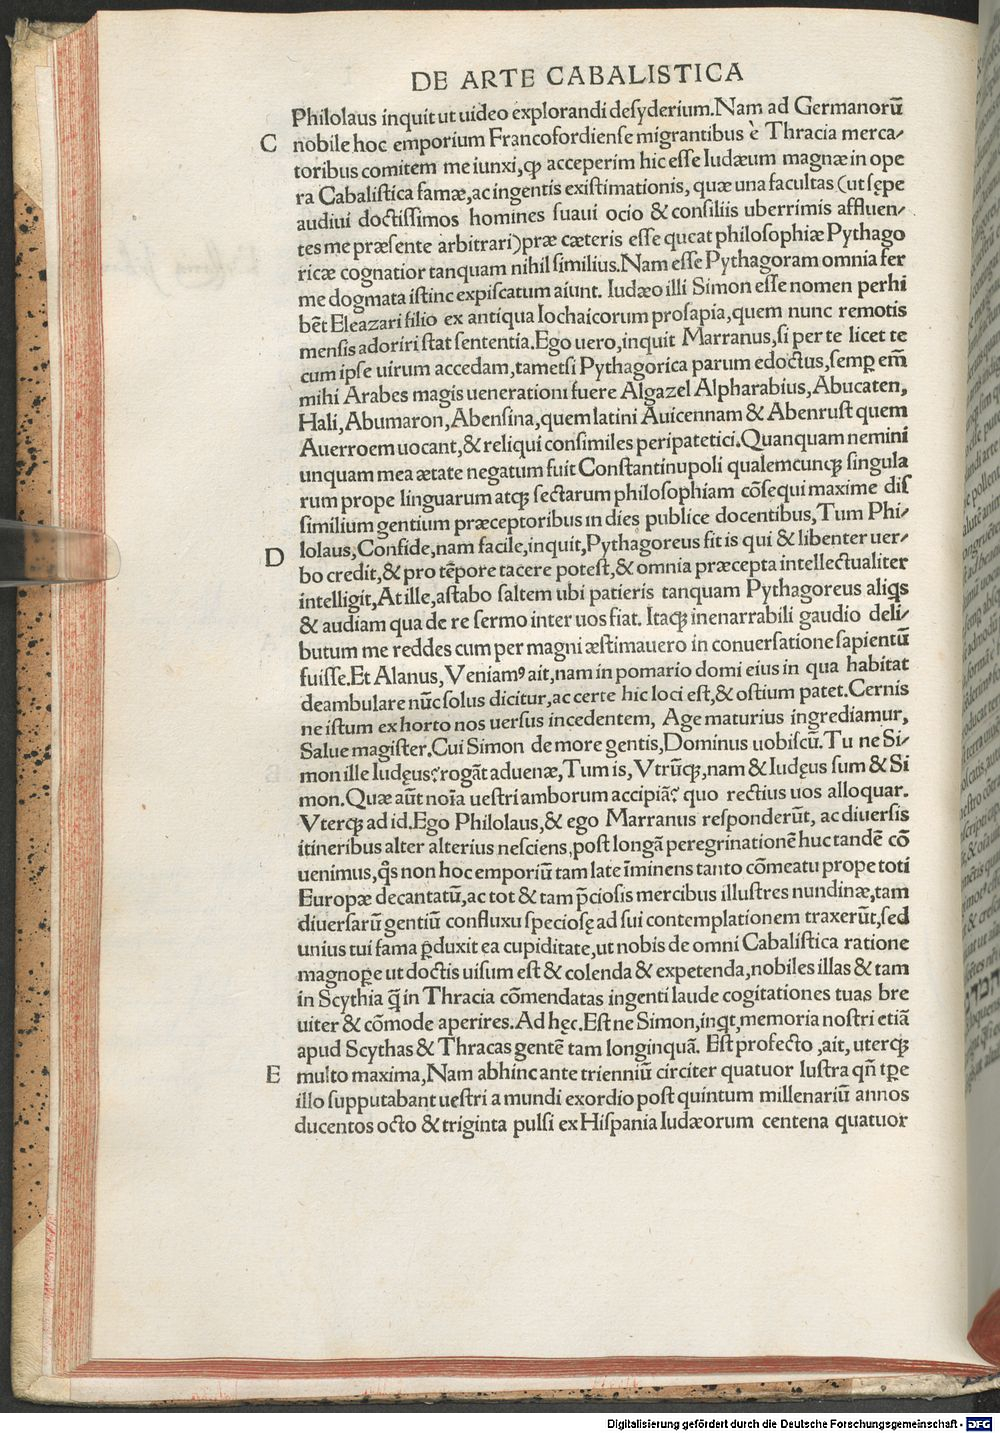 DE ARTE CABALISTICA
Philolaus inquit ut uideo explorandi deſyderium. Nam ad Germanorū
C nobile hoc emporium Francofordienſe migrantibus è Thracia merca-
toribus comitem me iunxi, ꝙ acceperim hic eſſe Iudæum magnæ in ope
ra Cabaliſtica famæ, ac ingentis exiſtimationis, quæ una facultas (ut ſępe
audiui doctiſſimos homines ſuaui ocio & conſiliis uberrimis affluen-
tes me præſente arbitrari) præ cæteris eſſe queat philoſophiæ Pythago
ricæ cognatior tanquam nihil ſimilius. Nam eſſe Pythagoram omnia fer
me dogmata iſtinc expiſcatum aiunt. Iudæo illi Simon eſſe nomen perhi
bēt Eleazari filio ex antiqua Iochaicorum proſapia, quem nunc remotis
menſis adoriri ſtat ſententia. Ego uero, inquit Marranus, ſi per te licet te
cum ipſe uirum accedam, tametſi Pythagorica parum edoctus, ſemꝑ em̄
mihi Arabes magis uenerationi fuere Algazel Alpharabius, Abucaten,
Hali, Abumaron, Abenſina, quem latini Auicennam & Abenruſt quem
Auerroem uocant, & reliqui conſimiles peripatetici. Quanquam nemini
unquam mea ætate negatum fuit Conſtantinupoli qualemcunqꝫ ſingula
rum prope linguarum atqꝫ ſectarum philoſophiam cōſequi maxime diſ
ſimilium gentium præceptoribus in dies publice docentibus, Tum Phi-
D lolaus, Confide, nam facile, inquit, Pythagoreus fit is qui & libenter uer-
bo credit, & pro tēpore tacere poteſt, & omnia præcepta intellectualiter
intelligit, At ille, aſtabo ſaltem ubi patieris tanquam Pythagoreus aliqs
& audiam qua de re ſermo inter uos fiat. Itaqꝫ inenarrabili gaudio deli-
butum me reddes cum per magni æſtimauero in conuerſatione ſapientū
fuiſſe. Et Alanus, Veniamꝰ ait, nam in pomario domi eius in qua habitat
deambulare nūc ſolus dicitur, ac certe hic loci eſt, & oſtium patet. Cernis
ne iſtum ex horto nos uerſus incedentem, Age maturius ingrediamur,
Salue magiſter. Cui Simon de more gentis, Dominus uobiſcū. Tu ne Si-
mon ille Iudęus? rogāt aduenæ, Tum is, Vtrūqꝫ, nam & Iudęus ſum & Si
mon. Quæ aūt noīa ueſtri amborum accipiā? quo rectius uos alloquar.
Vterqꝫ ad id. Ego Philolaus, & ego Marranus reſponderūt, ac diuerſis
itineribus alter alterius neſciens, poſt longā peregrinationē huc tandē cō
uenimus, qͦs non hoc emporiū tam late īminens tanto cōmeatu prope toti
Europæ decantatū, ac tot & tam p̄cioſis mercibus illuſtres nundinæ, tam
diuerſarū gentiū confluxu ſpecioſę ad ſui contemplationem traxerūt, ſed
unius tui fama ꝑduxit ea cupiditate, ut nobis de omni Cabaliſtica ratione
magnoꝑe ut doctis uiſum eſt & colenda & expetenda, nobiles illas & tam
in Scythia q̄ in Thracia cōmendatas ingenti laude cogitationes tuas bre
uiter & cōmode aperires. Ad hęc. Eſt ne Simon, inqt, memoria noſtri etiā
apud Scythas & Thracas gentē tam longinquā. Eſt profecto, ait, uterqꝫ
E multo maxima, Nam abhinc ante trienniū circiter quatuor luſtra qñ tꝑe
illo ſupputabant ueſtri a mundi exordio poſt quintum millenariū annos
ducentos octo & triginta pulſi ex Hiſpania Iudæorum centena quatuor
Digitalisierung gefördert durch die Deutsche Forschungsgemeinschaft - DFG